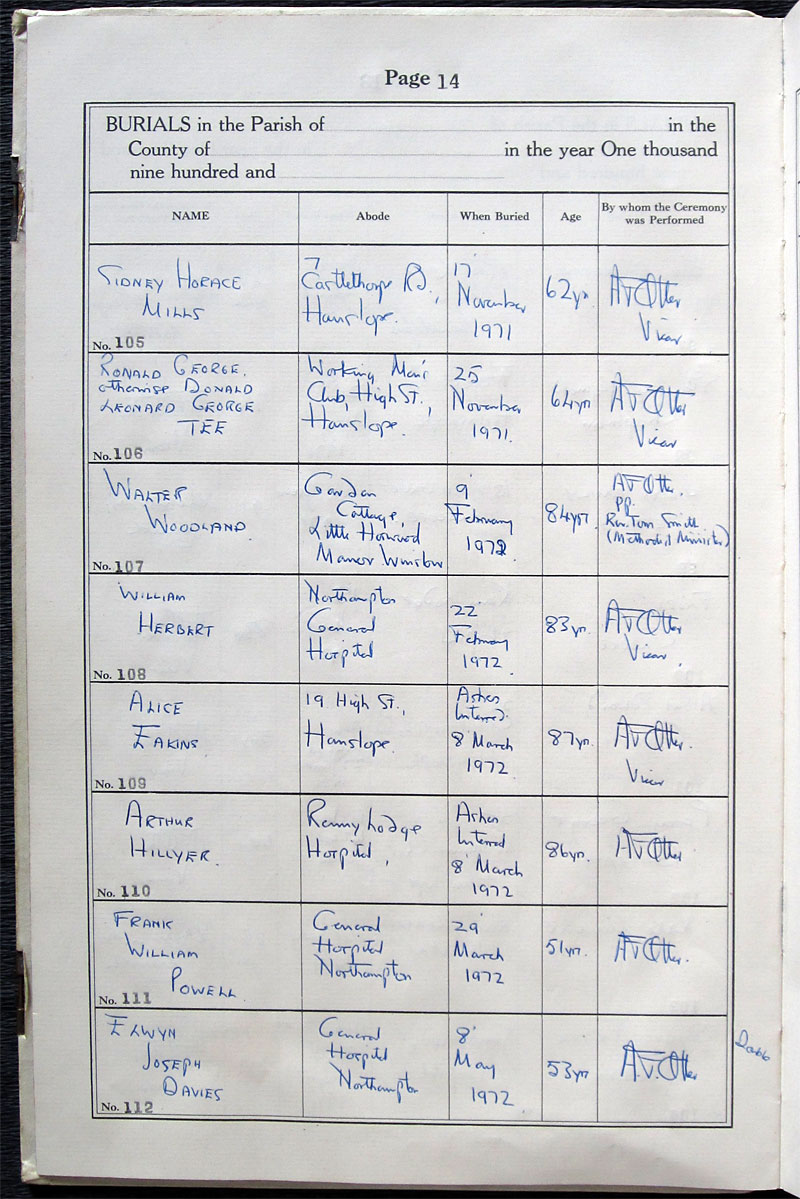 Page 14
BURIALS in the Parish of in the
County of in the year One thousand
nine hundred and
NAME Abode When Buried Age By whom the Ceremony
was Performed
SIDNEY HORACE
MILLS
No. 105
7
Castlethorpe Rd.,
Hanslope.
17
November
1971
62yr.
A V Otter
Vicar
RONALD GEORGE,
otherwise DONALD
LEONARD GEORGE
TEE
No. 106
Working Men's
Club, High St.,
Hanslope.
25
November
1971.
64yr
A V Otter
Vicar
WALTER
WOODLAND.
No. 107
Garden
Cottage,
Little Horwood
Manor Winslow
9
February
1972
84yr.
A V Otter.
pp.
Rev. Tom Smith
(Methodist Minister)
WILLIAM
HERBERT
No. 108
Northampton
General
Hospital
22
February
1972
83yr.
A V Otter
Vicar.
ALICE
EAKINS
No. 109
19 High St.,
Hanslope.
Ashes
Interred.
8 March
1972
87yr.
A V Otter.
Vicar
ARTHUR
HILLYER.
No. 110
Renny Lodge
Hospital,
Ashes
Interred
8 March
1972
86yr.
A V Otter
FRANK
WILLIAM
POWELL.
No. 111
General
Hospital
Northampton
29
March
1972
51yr.
A V Otter.
ELWYN
JOSEPH
DAVIES
No. 112
General
Hospital
Northampton
8
May
1972
53yr
A.V. Otter